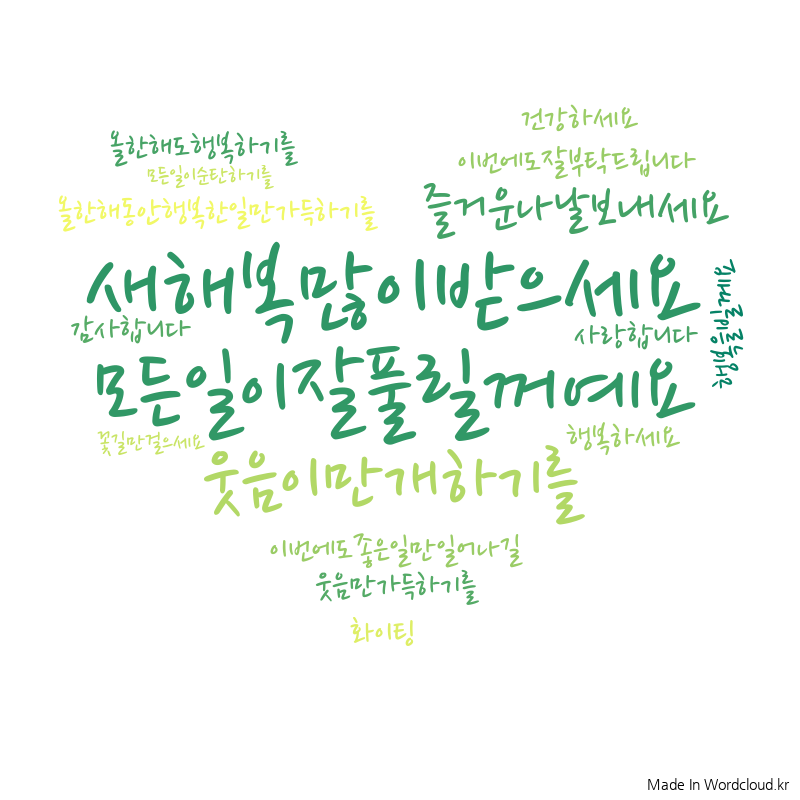 건강하세요
올한해도행복하기를
이번에도잘부탁드립니다
모든일이순탄하기를
올한해동안행복한일만가득하기를
즐거운나날보내세요
새해복많이받으세요
감사합니다
사랑합니다
모든일이잘풀릴꺼예요
꽃길만걸으세요
행복하세요
웃음이만개하기를
이번에도좋은일만일어나길
웃음만가득하기를
화이팅
Made In Wordcloud.kr